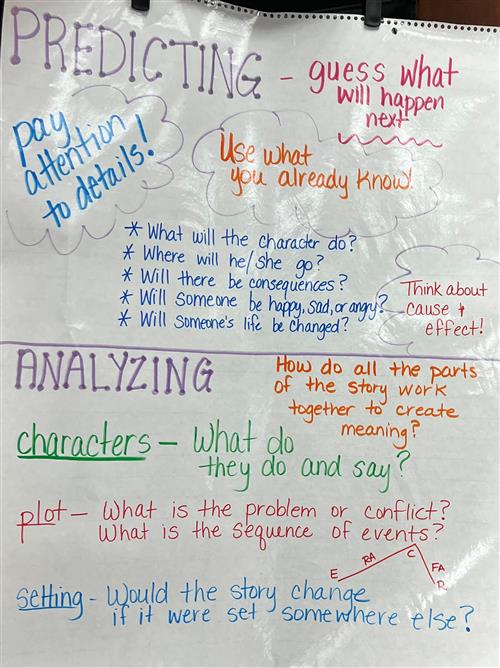 PREDICTING - guess what
will happen
next
pay
attention
to details!
Use what
you already know!
* What will the character do?
* Where will he/she go?
* Will there be consequences?
* Will someone be happy, sad, or angry?
* Will someone's life be changed?
Think about
cause +
effect!
ANALYZING
How do all the parts
of the story work
together to create
meaning?
characters - What do
they do and say?
plot - What is the problem or conflict?
What is the sequence of events?
E RA C FA R
setting - Would the story change
if it were set somewhere else?